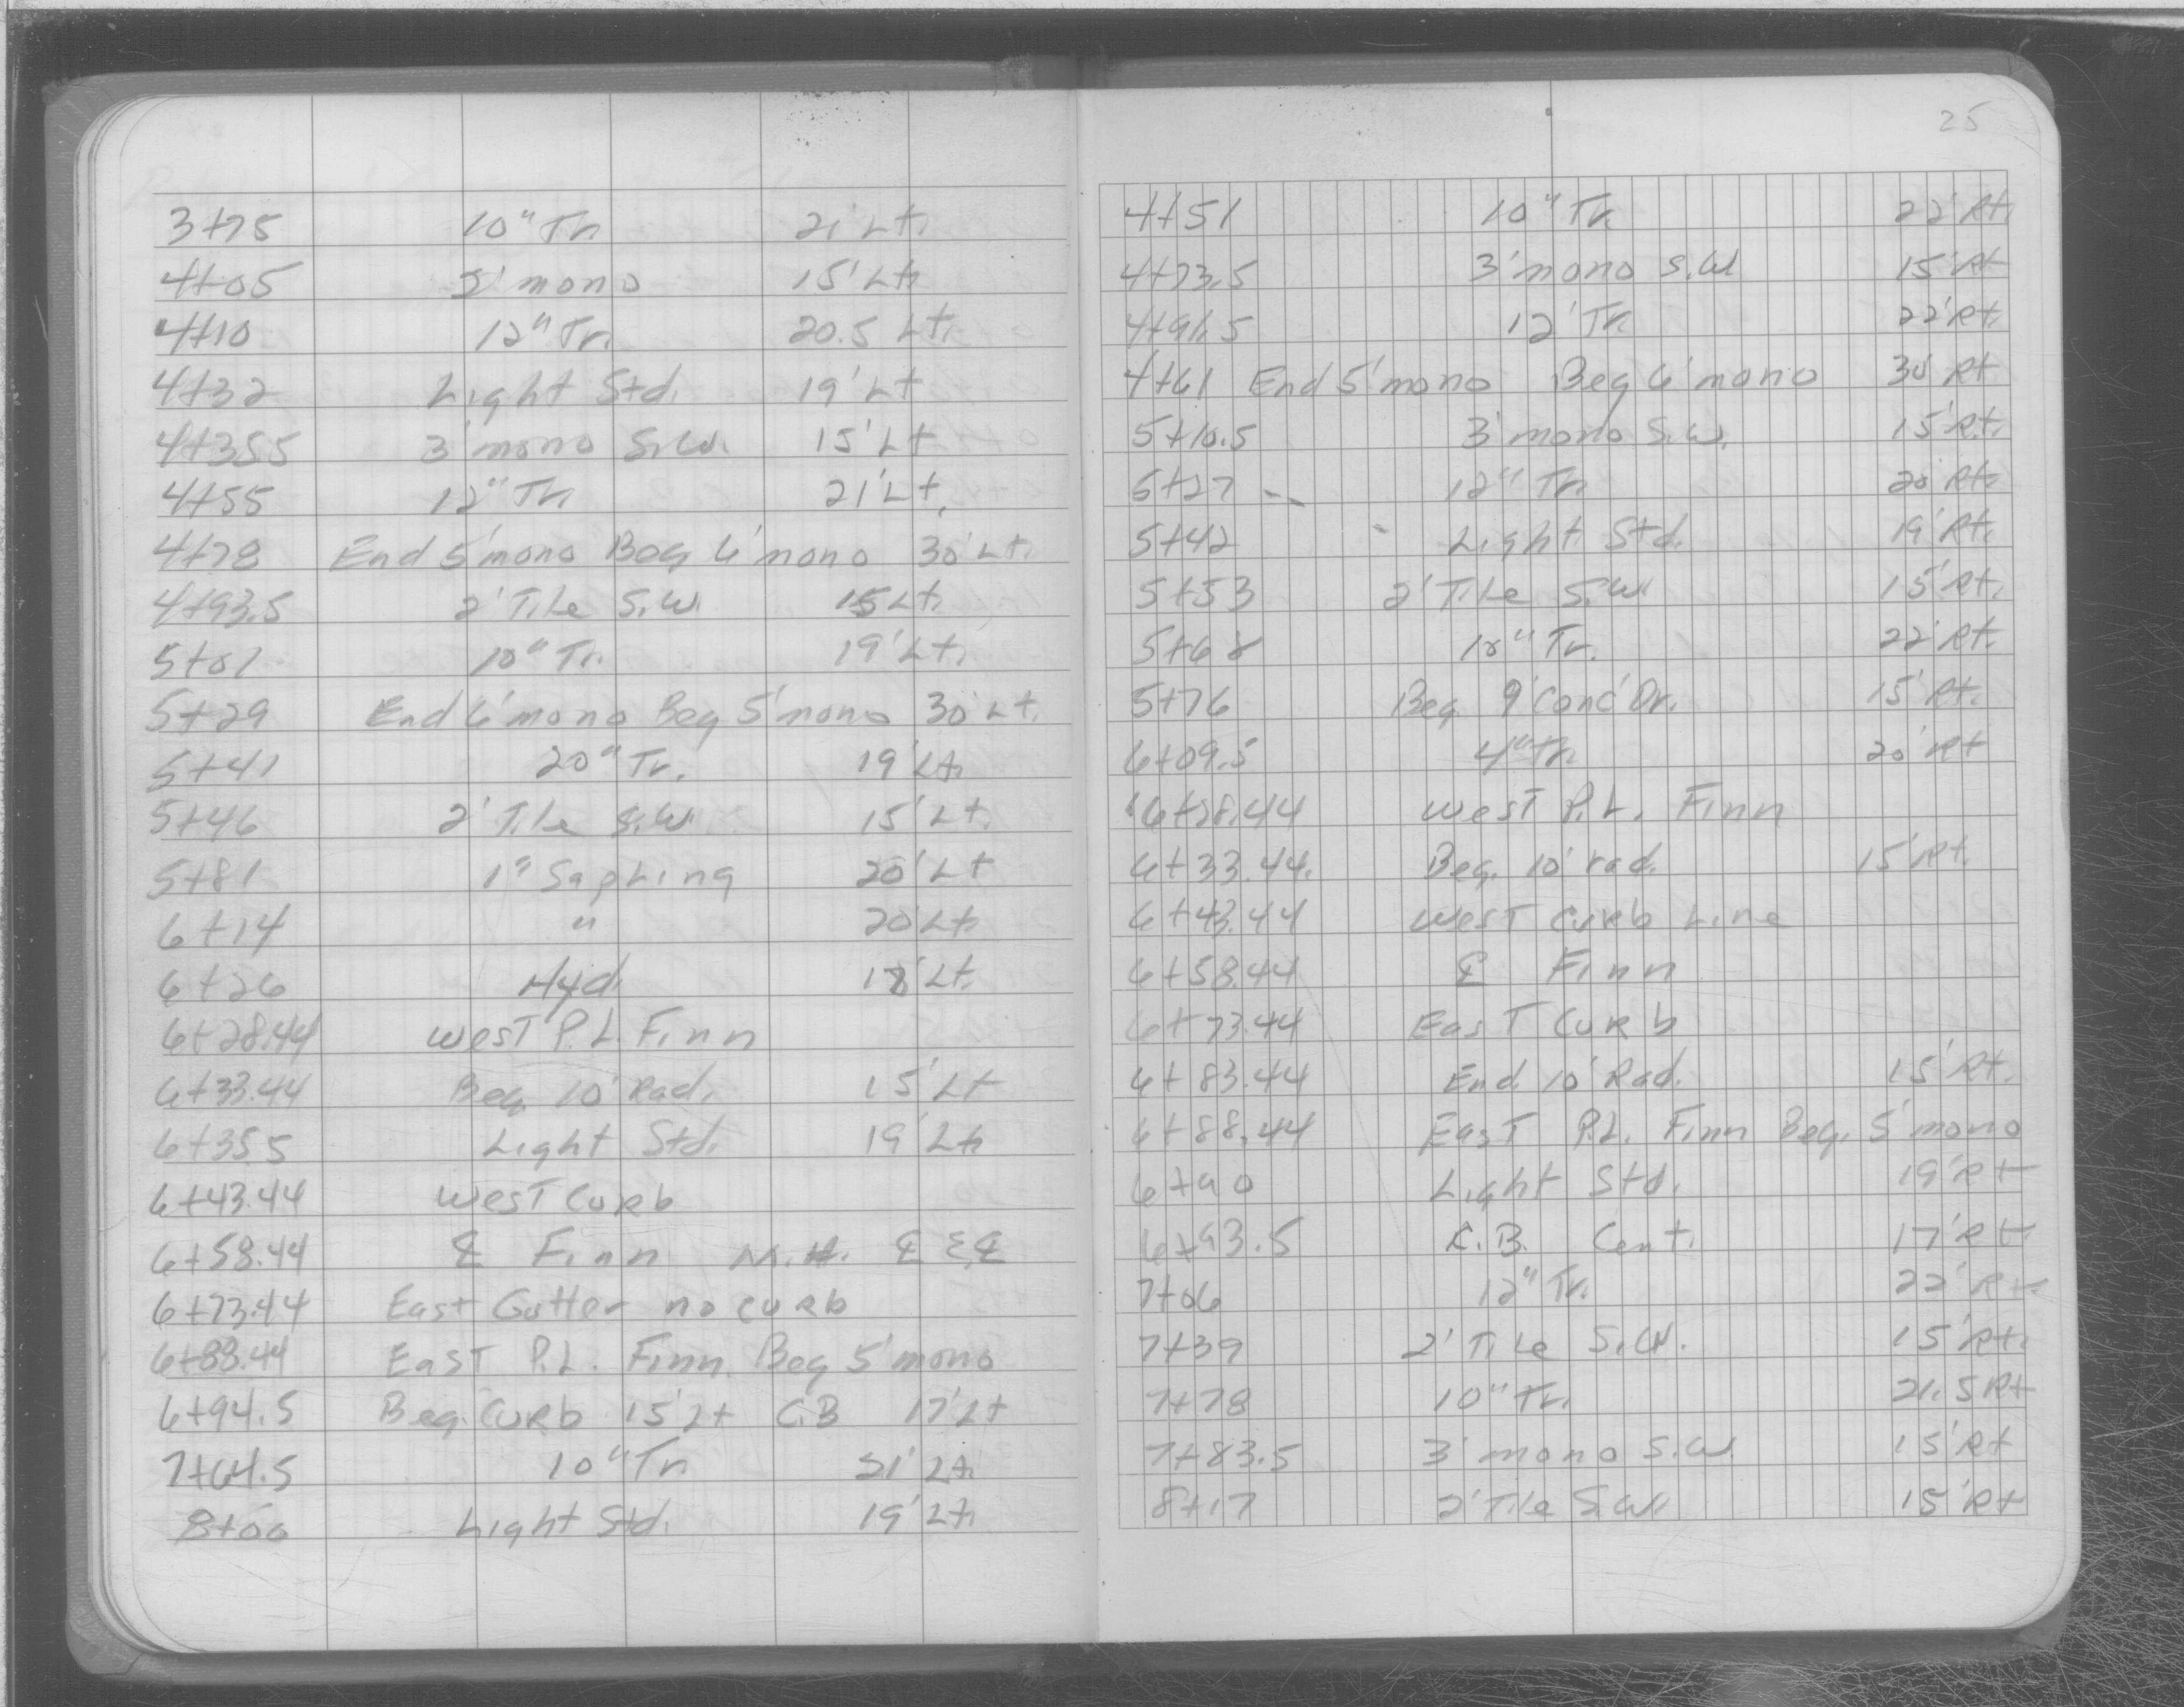 3+75 10" Tr. 21' Lt.
4+05 2' mono 15' Lt.
4+10 12" Tr. 20.5 Lt.
4+32 Light Std. 19' Lt
4+35.5 3' mono S.W. 15' Lt
4+55 12" Tr. 21' Lt.
4+78 End 5' mono Beg 6' mono 30' Lt.
4+93.5 2' Tile S.W. 15 Lt.
5+01 10" Tr. 19' Lt.
5+29 End 6' mono Beg 5' mono 30' Lt.
5+41 20" Tr. 19' Lt.
5+46 2' Tile S.W. 15' Lt.
5+81 1" Sapling 20' Lt
6+14 " 20' Lt.
6+26 Hyd. 18' Lt.
6+28.44 West P.L. Finn
6+33.44 Beg 10' Rad. 15' Lt
6+35.5 Light Std. 19' Lt.
6+43.44 West Curb
6+58.44 ℄ Finn M.H. ℄ & ℄
6+73.44 East Gutter no curb
6+88.44 East P.L. Finn Beg 5' mono
6+94.5 Beg. Curb 15' Lt C.B 17' Lt
7+64.5 10" Tr. 21' Lt.
8+00 Light Std. 19' Lt.
25
4+51 10" Tr. 22' Rt.
4+73.5 3' mono S.W 15' Rt
4+91.5 12' Tr. 22' Rt.
4+61 End 5' mono Beg 6' mono 30' Rt
5+10.5 3' mono S.W. 15' Rt.
5+27 12" Tr. 20' Rt.
5+42 Light Std. 19' Rt.
5+53 2' Tile S.W 15' Rt.
5+68 18" Tr. 22' Rt.
5+76 Beg 9' Conc Dr. 15' Rt.
6+09.5 4" Tr. 20' Rt
6+28.44 West P.L. Finn
6+33.44. Beg. 10' rad. 15' Rt.
6+43.44 West Curb Line
6+58.44 ℄ Finn
6+73.44 East Curb
6+83.44 End. 10' Rad. 15' Rt.
6+88.44 East P.L. Finn Beg. 5' mono
6+90 Light Std. 19' Rt
6+93.5 C.B. Cent. 17' Rt
7+06 12" Tr. 22' Rt.
7+39 2' Tile S.W. 15' Rt.
7+78 10" Tr. 21.5 Rt
7+83.5 3' mono S.W. 15' Rt
8+17 2' Tile S.W. 15' Rt